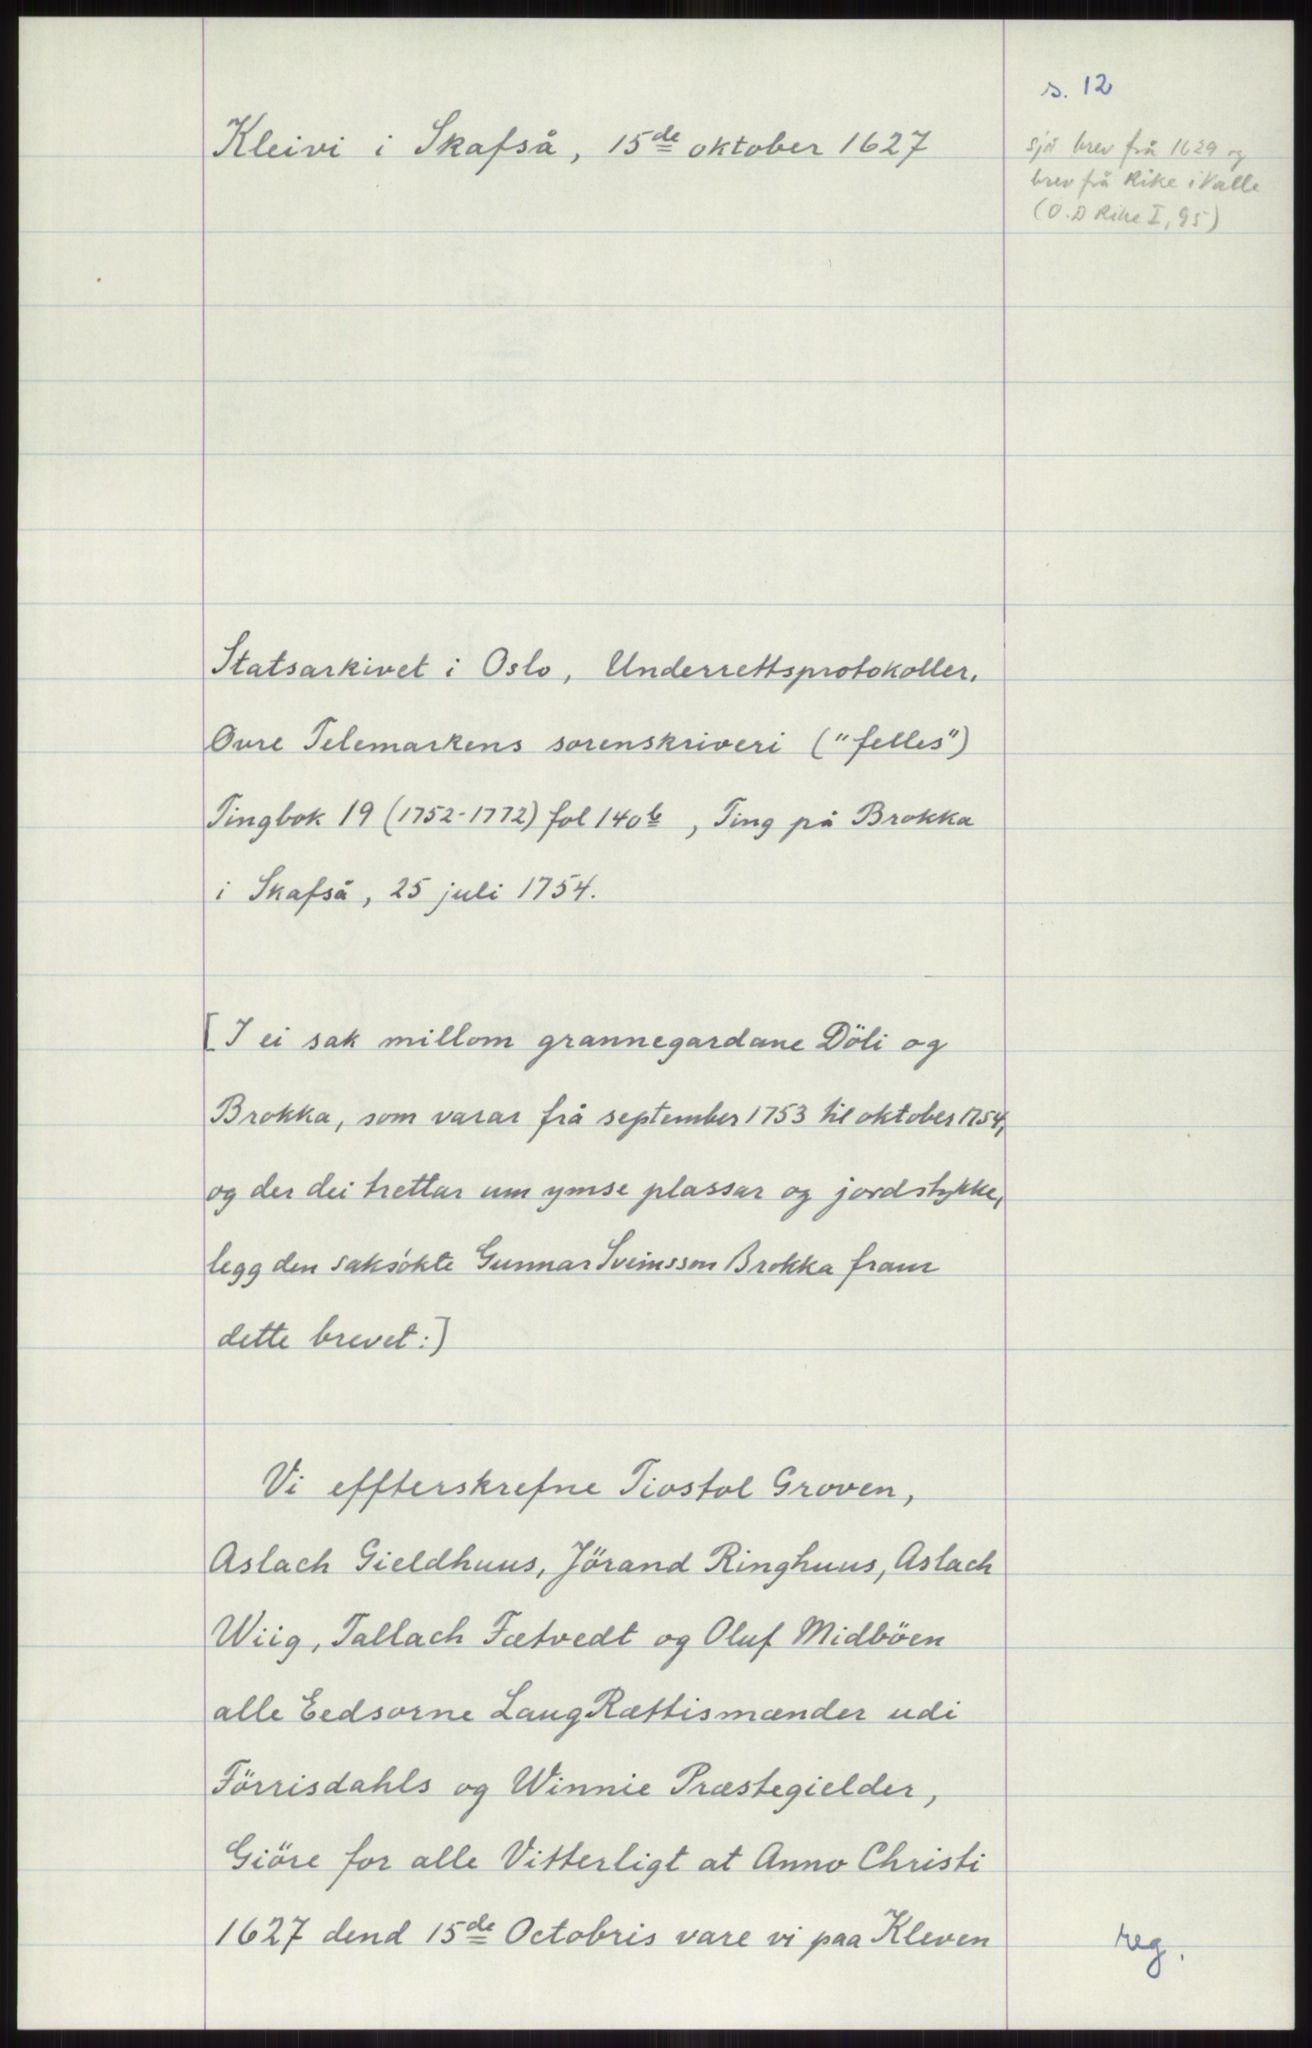 s. 12
Kleivi i Skafså, 15de oktober 1627
sjå brev frå 1629 og
brev frå Rike i Valle
(O.D Rike I, 95)
Statsarkivet i Oslo, Underrettsprotokoller.
Øvre Telemarkens sorenskriveri ("felles")
Tingbok 19 (1752-1772) fol 140b, Ting på Brokka
i Skafså, 25 juli 1754.
[I ei sak millom grannegardane Döli og
Brokka, som varar frå september 1753 til oktober 1754,
og der dei trettar um ymse plassar og jordstykke,
legg den saksökte Gunnar Sveinsson Brokka fram
dette brevet:]
Vi effterskrefne Tiostol Groven,
Aslach Gieldhuus, Jörand Ringhuus, Aslach
Wiig, Tallach Fætvedt og Oluf Midböen
alle Eedsorne LaugRættismænder udi
Förrisdahls og Winnie Præstegielder,
Giöre for alle Vitterligt at Anno Christi
1627 dend 15de Octobris vare vi paa Kleven
reg.